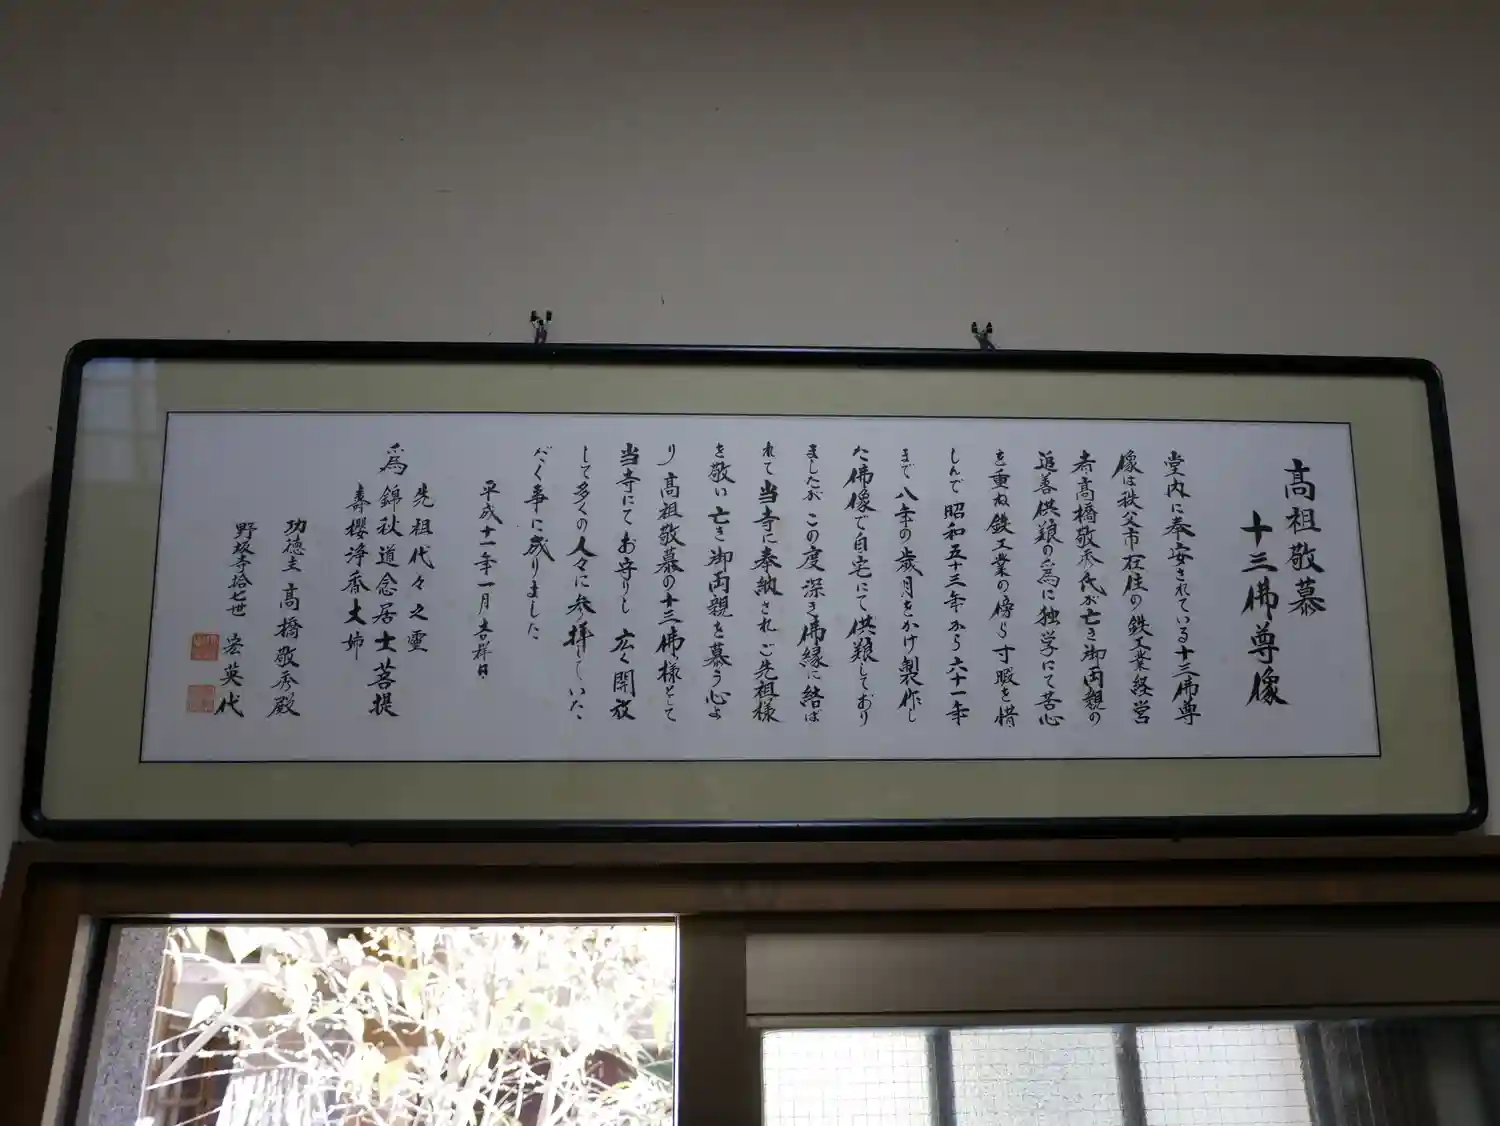 高祖敬慕
十三佛尊像
堂内に奉安されている十三佛尊
像は秩父市在住の鉄工業経営
者高橋敬秀氏が亡き御両親の
追善供養の為に独学にて苦心
を重ね鉄工業の傍ら寸暇を惜
しんで昭和五十三年から六十一年
まで八年の歳月をかけ製作し
た佛像で自宅にて供養しており
ましたがこの度深き佛縁に結ば
れて当寺に奉納されご先祖様
を敬い亡き御両親を慕う心よ
り高祖敬慕の十三佛様として
当寺にてお守りし広く開放
して多くの人々に参拝していた
だく事に成りました
平成十一年一月吉祥日
先祖代々之霊
為錦秋道念居士菩提
壽櫻浄香大姉
功徳主高橋敬秀殿
野坂寺拾七世宏英代